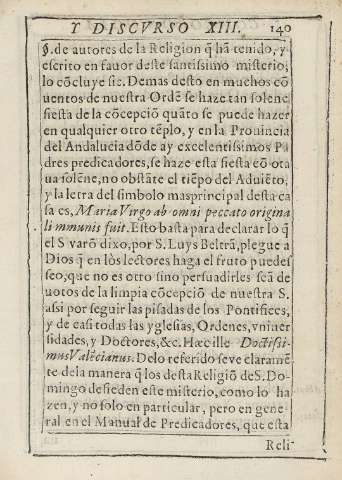 Y DISCVRSO XIII. 140
§. de autores de la Religion q̃ hã tenido, y
escrito en fauor deste santissimo misterio;
lo cõcluye sic. Demas desto en muchos cõ
uentos de nuestra Ordẽ se haze tan solene
fiesta de la cõcepciõ quãto se puede hazer
en qualquier otro tẽplo, y en la Prouincia
del Andalucia dõde ay excelentissimos Pa
dres predicadores, se haze esta fiesta cõ ota
ua solẽne, no obstãte el tiẽpo del Aduiẽto;
y la letra del simbolo mas principal desta ca
sa es, Maria Virgo ab omni peccato origina
li mmunis fuit. Esto basta para declarar lo q̃
el S varõ dixo, por S. Luys Beltrã, plegue a
Dios q̃ en lòs lectores haga el fruto puedes
seo, que no es otro sino persuadirles seã de
uotos de la limpia cõcepciõ de nuestra S.
assi por seguir las pisadas de los Pontifices,
y de casi todas las yglesias, Ordenes, vniuer
sidades, y Doctores, &c. Hæc ille Doctissi-
mus Valẽcianus. De lo referido se ve claramẽ
te de la manera q̃ los desta Religiõ de S. Do-
mingo defieden este misterio, como lo ha
zen, y no solo en particular, pero en gene
ral en el Manual de Predicadores, que esta
Reli-